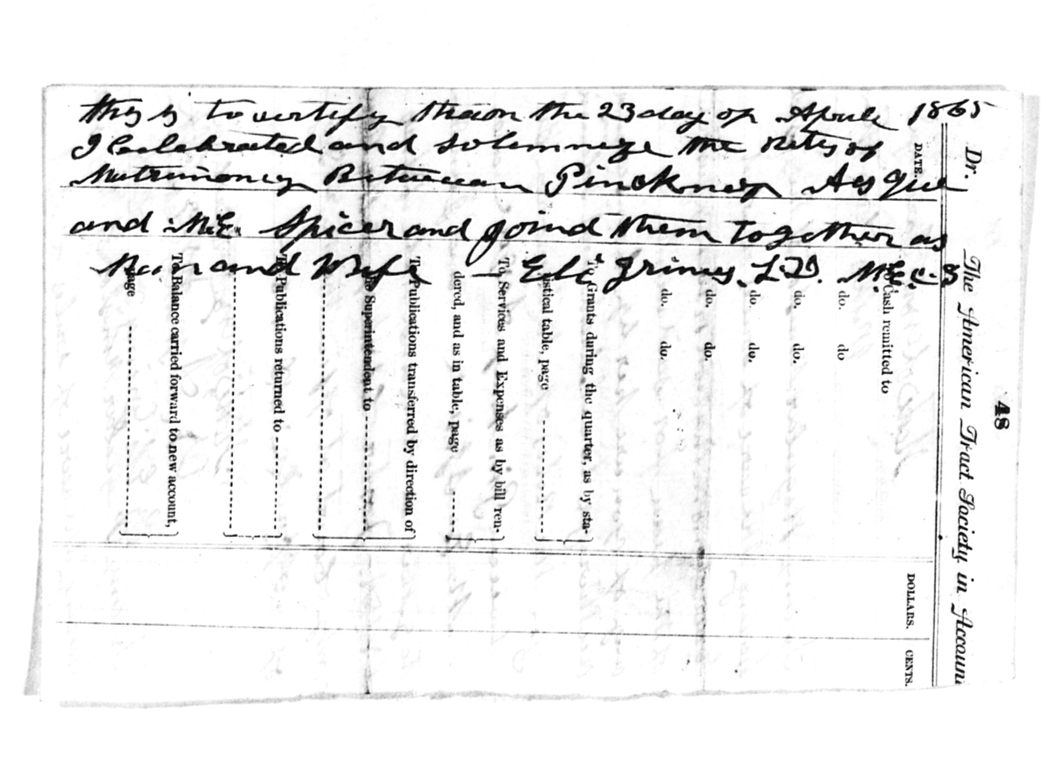 this is to certify thaon the 23 day of Aprile 1865
I Celabrated and Solemnize the Rites of
Matrimoney Betweean Pinckney
and M.E. Spicer and joind them together as
Man and Wife — Eli Grimes. L.D. M.E.C.S
48
Dr. The American Tract Society in Accoun
DATE. DOLLARS. CENTS.
Cash remitted to
do. do
do. do.
do. do.
do. do.
do. do.
To Grants during the quarter, as by sta-
tistical table, page
To Services and Expenses as by bill ren-
dered, and as in table, page
To Publications transferred by direction of
Superintendent to
To Publications returned to
To Balance carried forward to new account,
page